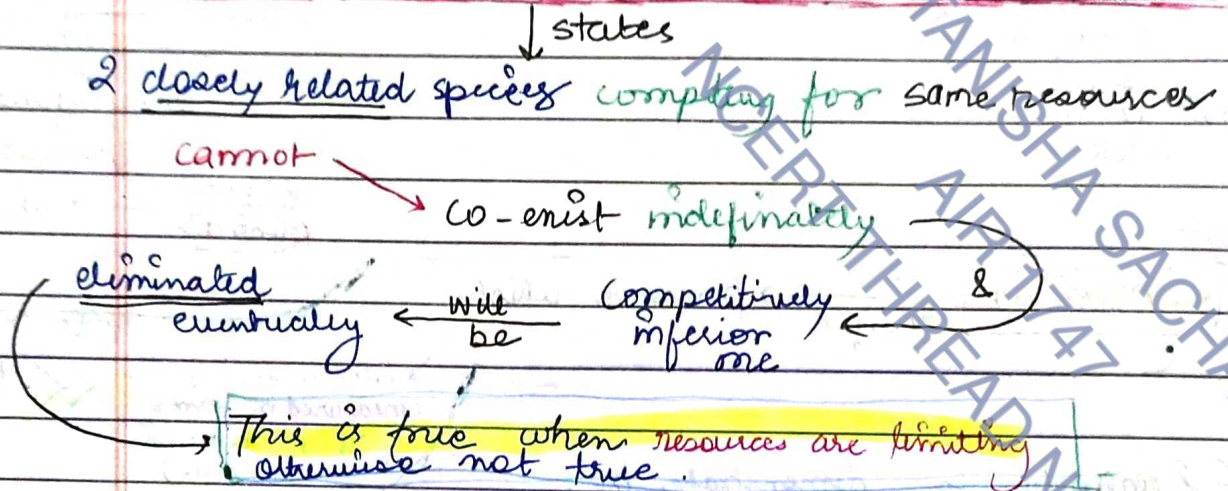 states
2 closely related species compting for same resources
cannot
co-exist indefinately
&
competitively
inferior
one
will
be
eliminated
eventually
This is true when resources are limiting
otherwise not true.
TANISHA SACH
AIR 1747
NCERT THREAD